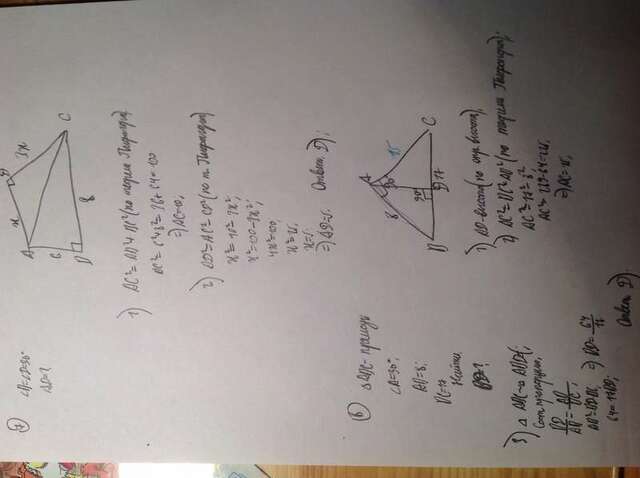 7)
AD=?
A x D
6
3x
B
8
C
1) AC²= AB²+ BC² (по теореме Пифагора)
AC²= 6²+8²= 36+64=100
=> AC=10;
2) AD²=AC²-CD² (по т. Пифагора)
x²=10²-3x²;
x²=100-3x²;
4x²=100;
x²=25;
x=5
=> AD=5. Ответ: D);
6)
△ ABC- прямоуг
∠A=90°;
AB=8;
BC=17
Найти
BD=?
A
8
15
90°
B D 17 C
1) AD-высота (по опр. высота);
2) AC²= BC²-AB² (по теореме Пифагора);
AC²=17²-8²
AC²=289-64=225,
=> AC=15;
3) △ ABC ~ △ ABD;
Сост. пропорцию,
BD/AB = AB/BC;
AB²=BD·BC, => BD= 64/17
64=17BD;
Ответ: D).